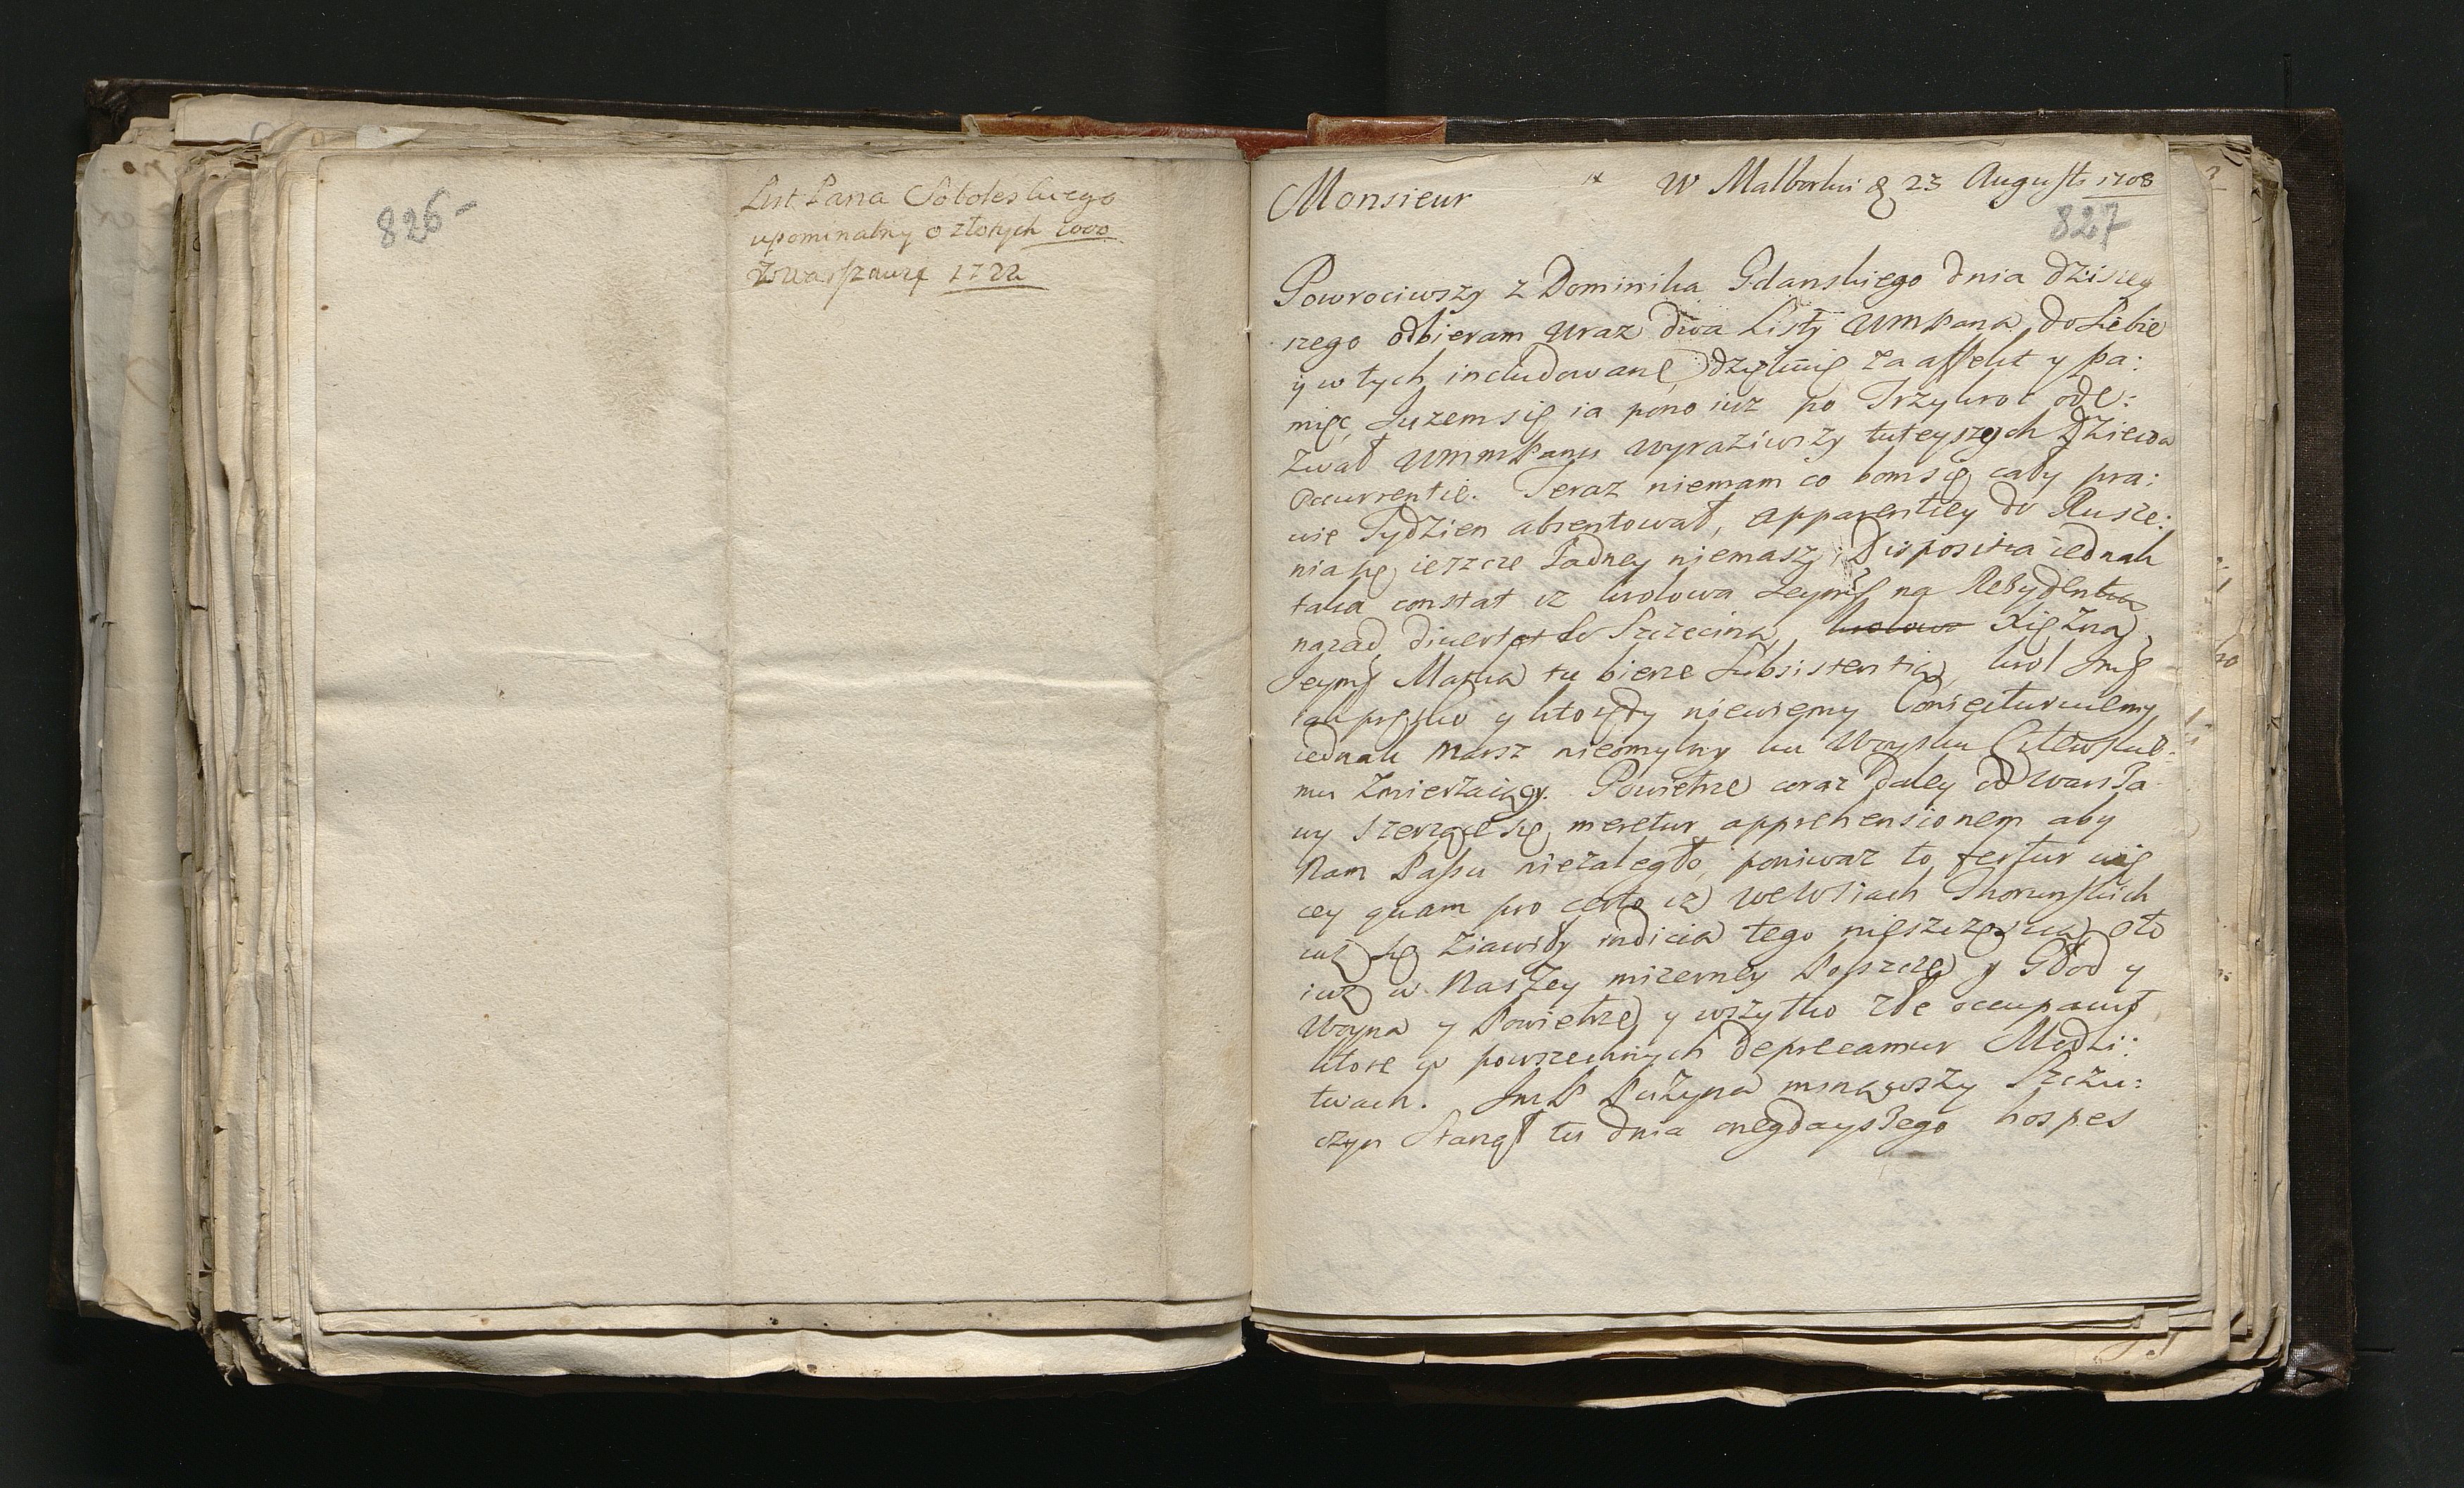 826-
List Pana Soboleskiego
upominalny o złotych 2000
z Warszawy 1722
W Malborku d 23 Augusti 1708
Monsieur
827
Powrociwszy z Dominika Gdanskiego dnia dzisiey
szego odbieram wraz dwa Listy WmPana do siebie
y w tych includowane, dziękuię za affekt y pa:
mięć, Juzem się ia pono iuz po Trzykroć ode:
zwał WmmPanu wyraziwszy tuteyszych
occurrentie. Teraz niemam co bom się cały pra:
wie Tydzien absentował, apparentiey do Rusze:
nia się ieszcze żadney niemasz, Dispositia iednak
taka constat iz krolowa Jeymć na Rezydentią
nazad divertet do Szczecina, krolowa Xiężna
Jeymć Matka tu bierze Subsistentią, krol Jmć
iak prętko y ktorędy niewiemy Coniecturuiemy
iednak Marsz nieomylny ku Woysku Litewskie:
mu zmierzaiący. Powietrze coraz daley od Warsza
wy szerzące się meretur apprehensionem aby
Nam Passu niezaległo, poniwaz to fertur wię
cey quam pro certo iz we Wsiach Thorunskich
iuz się ziawiły indicia tego nieszczęscia, oto
iuz w Naszey mizerney Polszcze y Głod y
Woyna y Powietrze y wszytko złe occupavit
ktore w powszechnych deprecamur Modli:
twach. JmP Puzyna minąwszy Szczu:
czyn Stanął tu dnia onegdayszego hospes